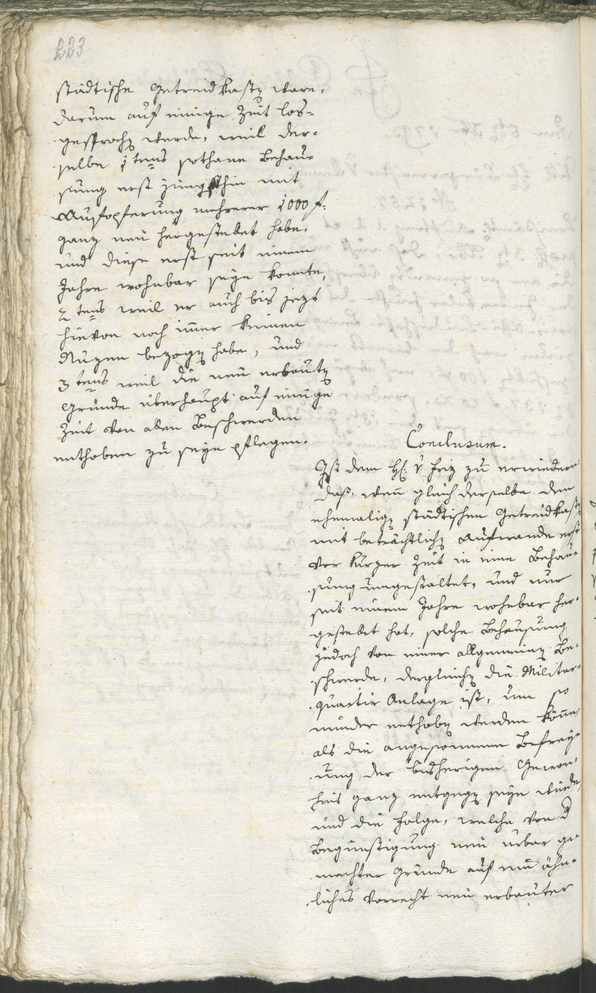 223
städtische Getreid Kasten ware,
darum auf einige Zeit los-
gesprochen werde, weil der-
selbe 1tens sothane Behau-
sung erst jüngsthin mit
Aufopferung mehrerer 1000 f.
ganz neu hergestellet habe,
und diese erst seit einem
Jahre wohnbar seye konnte,
2tens weil er auch bis jezt
hievon noch immer keinen
Nuzen bezogen habe, und
3tens weil die neu erbauten
Gründe überhaupt auf einige
Zeit von allen Beschwerden
enthoben zu seyn pflegen.
Conclusum.
Ist dem H. v Friz zu erwiedern
daß, wenn gleich derselbe den
ehemalig städtischen Getreidkasten
mit beträchtlichen Aufwande erst
vor kurzer Zeit in eine Behau-
sung umgestaltet, und nur
seit einem Jahre wohnbar her-
gestellet hat, solche Behausung
jedoch von einer allgemeinen Be-
schwerde, dergleichen die Militär-
quartir Anlage ist, um so
minder enthoben werden könne
als die angesonnene Befrey-
ung der bisherigen Gewon-
heit ganz entgegen seyn würde
und die Folge, welche von der
Begünstigung neu urbar ge-
machter Gründe auf ein ähn-
liches Vorrecht neu erbauter